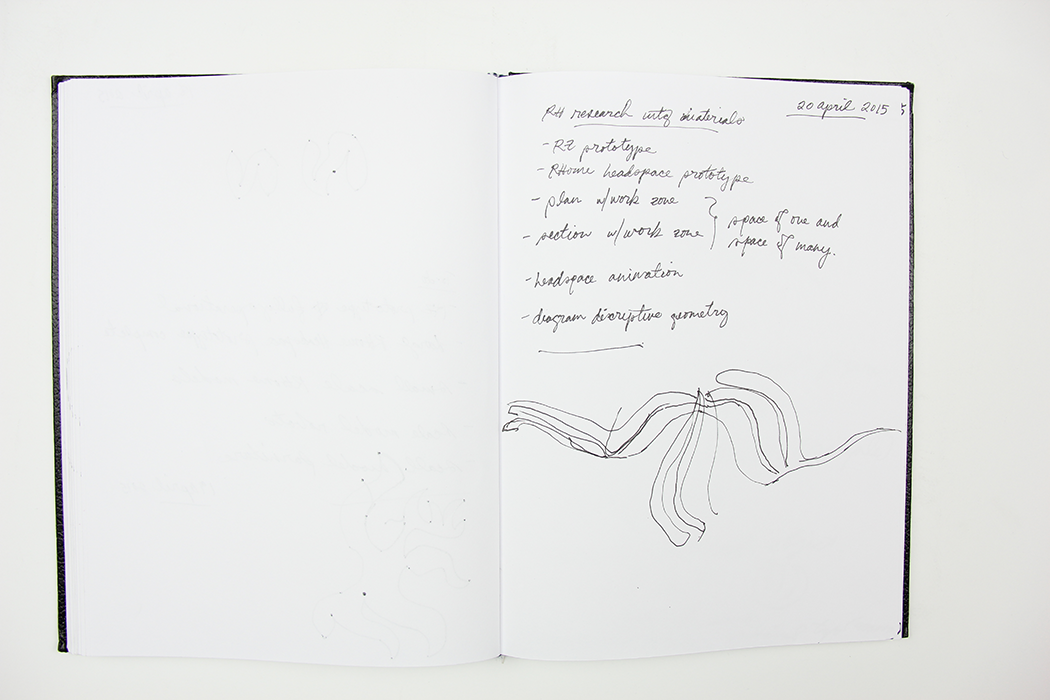 RH research mtg materials
20 april 2015
- RZ prototype
- RHome headspace prototype
- plan w/work zone
- section w/work zone
space of one and
space of many.
- headspace animation
- diagram discriptive geometry